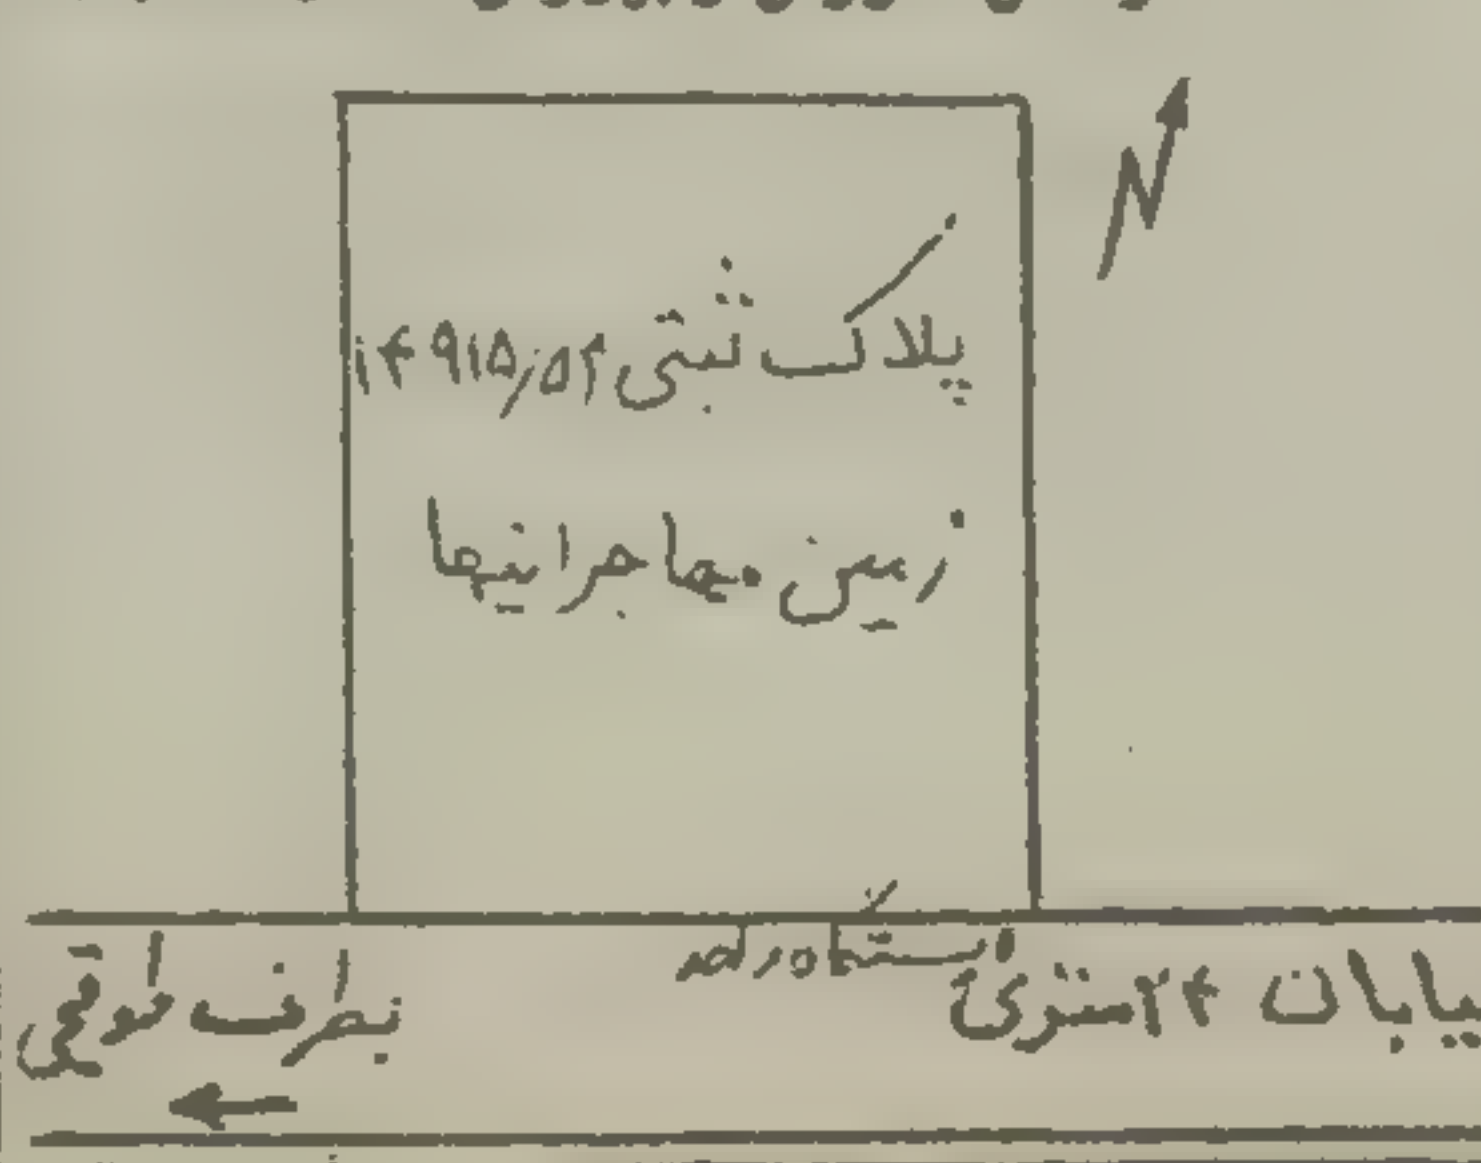 پلاک ثبتی ۱۴۹۱۵/۵۲
زمین مهاجرانیها
خیابان ۲۴ متری
ایستگاه
بطرف طوقچی